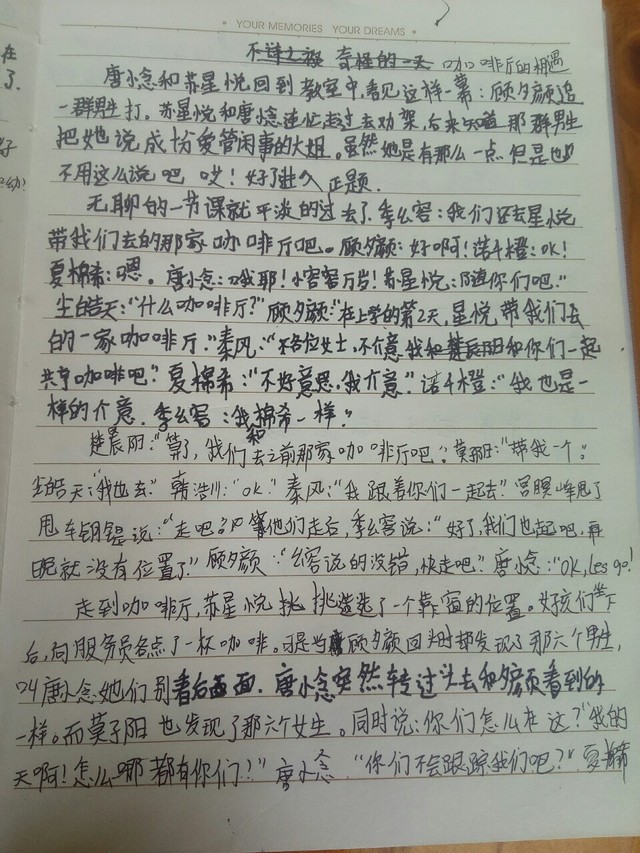 YOUR MEMORIES YOUR DREAMS
奇怪的一天 咖啡厅的相遇
唐小念和苏星悦回到教室中,看见这样一幕:顾夕颜追
一群男生打。苏星悦和唐小念连忙赶过去劝架,后来知道那群男生
把她说成扮爱管闲事的大姐。虽然她是有那么一点但是也
不用这么说吧 哎!好了进入正题.
无聊的一节课就平淡的过去了.季幺窑:我们还去星悦
带我们去的那家咖啡厅吧。顾夕颜:好啊!诺千橙:OK!
夏棉希:嗯。唐小念:哦耶!小窑窑万岁!苏星悦:随你们吧."
尘皓天:"什么咖啡厅?"顾夕颜:"在上学的第2天,星悦带我们去
的一家咖啡厅."秦风:"不各位女士,不介意我和楚辰阳和你们一起
共享咖啡吧?"夏棉希:"不好意思,我介意"诺千橙:"我也是一
样的介意.季幺窑:我和棉希一样."
楚晨阳:"算了,我们去之前那家咖啡厅吧."莫子阳:"带我一个。
尘皓天:"我也去."韩浩川:"OK."秦风:"我跟着你们一起去"宫暝峰甩了
甩车钥匙说:"走吧"等他们走后,季幺窑说:"好了,我们也起吧,再
晚就没有位置了."顾夕颜:"幺窑说的没错,快走吧."唐小念:"OK,les go!
走到咖啡厅,苏星悦挑挑选选了一个靠窗的位置。女孩们坐下
后,向服务员各点了一杯咖啡。可是当顾夕颜回头时却发现了那六个男生,
叫唐小念她们别看后面.唐小念突然转过头去和夕颜看到的
一样。而莫子阳也发现了那六个女生。同时说:你们怎么在这?"我的
天啊!怎么哪都有你们!"唐小念"你们不会跟踪我们吧?"夏棉希
在
了.